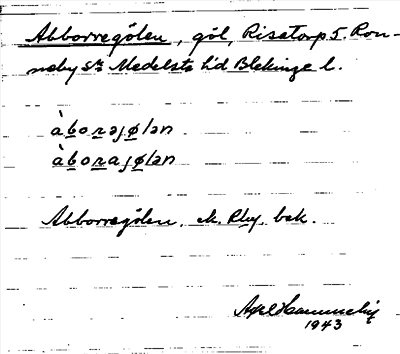 Abborregölen, göl, Risatorp 5. Ron-
neby sn Medelsta hd Blekinge l.
àborəjølən
àborajølən
Abborregölen. ek. Rby. bek.
Axel
1943